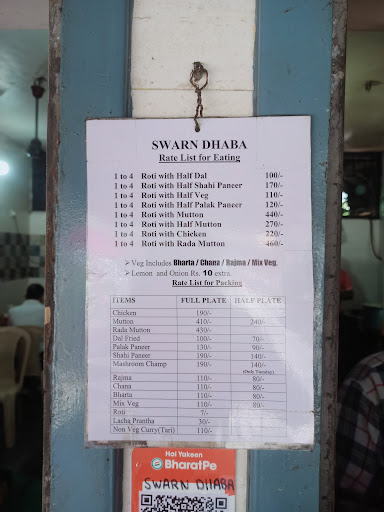 SWARN DHABA
Rate List for Eating
1 to 4 Roti with Half Dal 100/-
1 to 4 Roti with Half Shahi Paneer 170/-
1 to 4 Roti with Half Veg 110/-
1 to 4 Roti with Half Palak Paneer 120/-
1 to 4 Roti with Mutton 440/-
1 to 4 Roti with Half Mutton 270/-
1 to 4 Roti with Chicken 220/-
1 to 4 Roti with Rada Mutton 460/-
➢ Veg Includes Bharta / Chana / Rajma / Mix Veg.
➢ Lemon and Onion Rs. 10 extra.
Rate List for Packing
ITEMS FULL PLATE HALF PLATE
Chicken 190/-
Mutton 410/- 240/-
Rada Mutton 430/-
Dal Fried 100/- 70/-
Palak Paneer 130/- 90/-
Shahi Paneer 190/- 140/-
Mashroom Champ 190/- 140/-
(Only Tuesday)
Rajma 110/- 80/-
Chana 110/- 80/-
Bharta 110/- 80/-
Mix Veg 110/- 80/-
Roti 7/-
Lacha Prantha 30/-
Non Veg Curry(Tari) 110/-
Hai Yakeen
BharatPe
SWARN DHABA